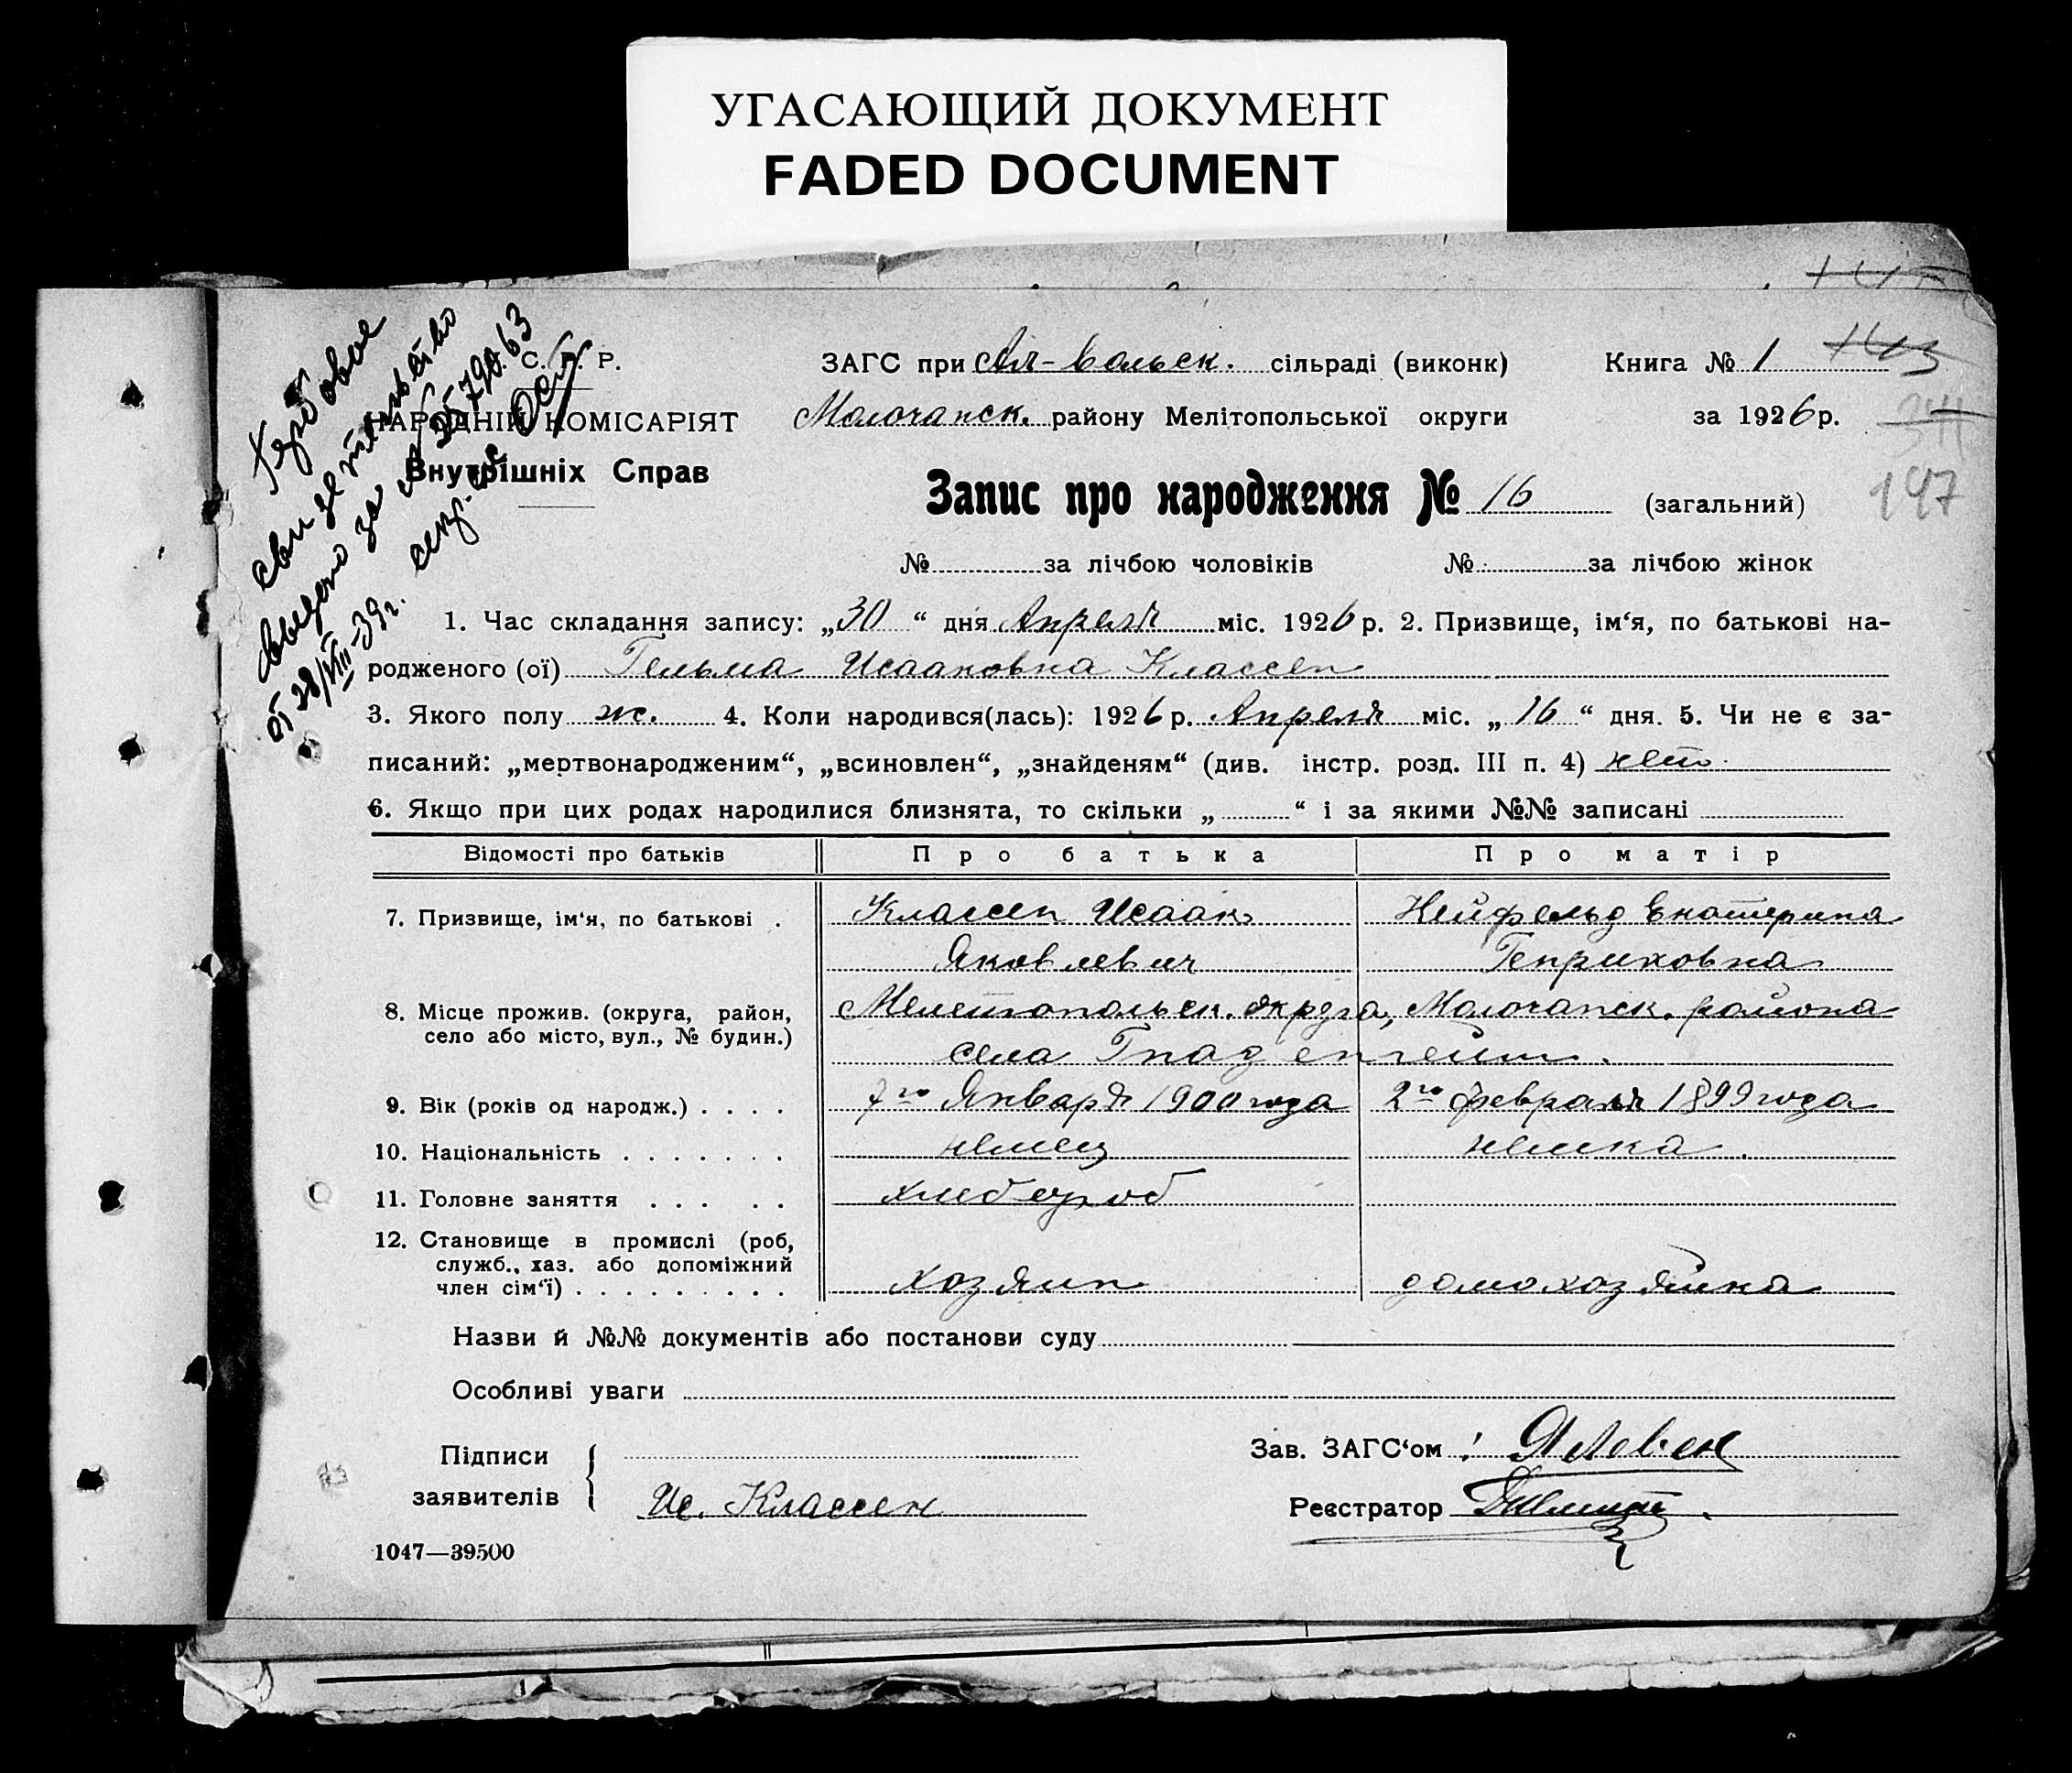 УГАСАЮЩИЙ ДОКУМЕНТ
FADED DOCUMENT
Гербовое
свидетельство
выдано за № 35790.63
от 28/VIII-39г.
У.С.Р.Р.
НАРОДНІЙ КОМІСАРІЯТ
Внутрішніх Справ
ЗАГС при Ал-вольск. сільраді (виконк)
Молочанск. району Мелітопольської округи
Книга № 1
за 1926 р.
147
Запис про народження № 16 (загальний)
№ за лічбою чоловіків № за лічбою жінок
1. Час складання запису: „30“ дня Апреля міс. 1926 р. 2. Призвище, ім‘я, по батькові на-
родженого (ої) Гельма Исааковна Классен
3. Якого полу ж. 4. Коли народився(лась): 1926 р. Апреля міс. „16“ дня. 5. Чи не є за-
писаний: „мертвонародженим“, „всиновлен“, „знайденям“ (див. інстр. розд. III п. 4) нет.
6. Якщо при цих родах народилися близнята, то скільки „ “ і за якими №№ записані
Відомості про батьків Про батька Про матір
7. Призвище, ім‘я, по батькові . Классен Исаак Нейфельд Екатерина
Яковлевич Генриховна
8. Місце прожив. (округа, район, Мелетопольск. округа, Молочанск. района
село або місто, вул., № будин.) села Гнаденгейм.
9. Вік (років од народж.) . . . . 7го Января 1900 года 2го февраля 1899 года
10. Національність . . . . . . . немец немка.
11. Головне заняття . . . . . хлебороб
12. Становище в промислі (роб,
служб., хаз. або допоміжний
член сім‘ї) . . . . . . . . . хозяин домохозяйка
Назви й №№ документів або постанови суду
Особливі уваги
Підписи
заявителів Ис. Классен
Зав. ЗАГС‘ом
Реєстратор
1047—39500